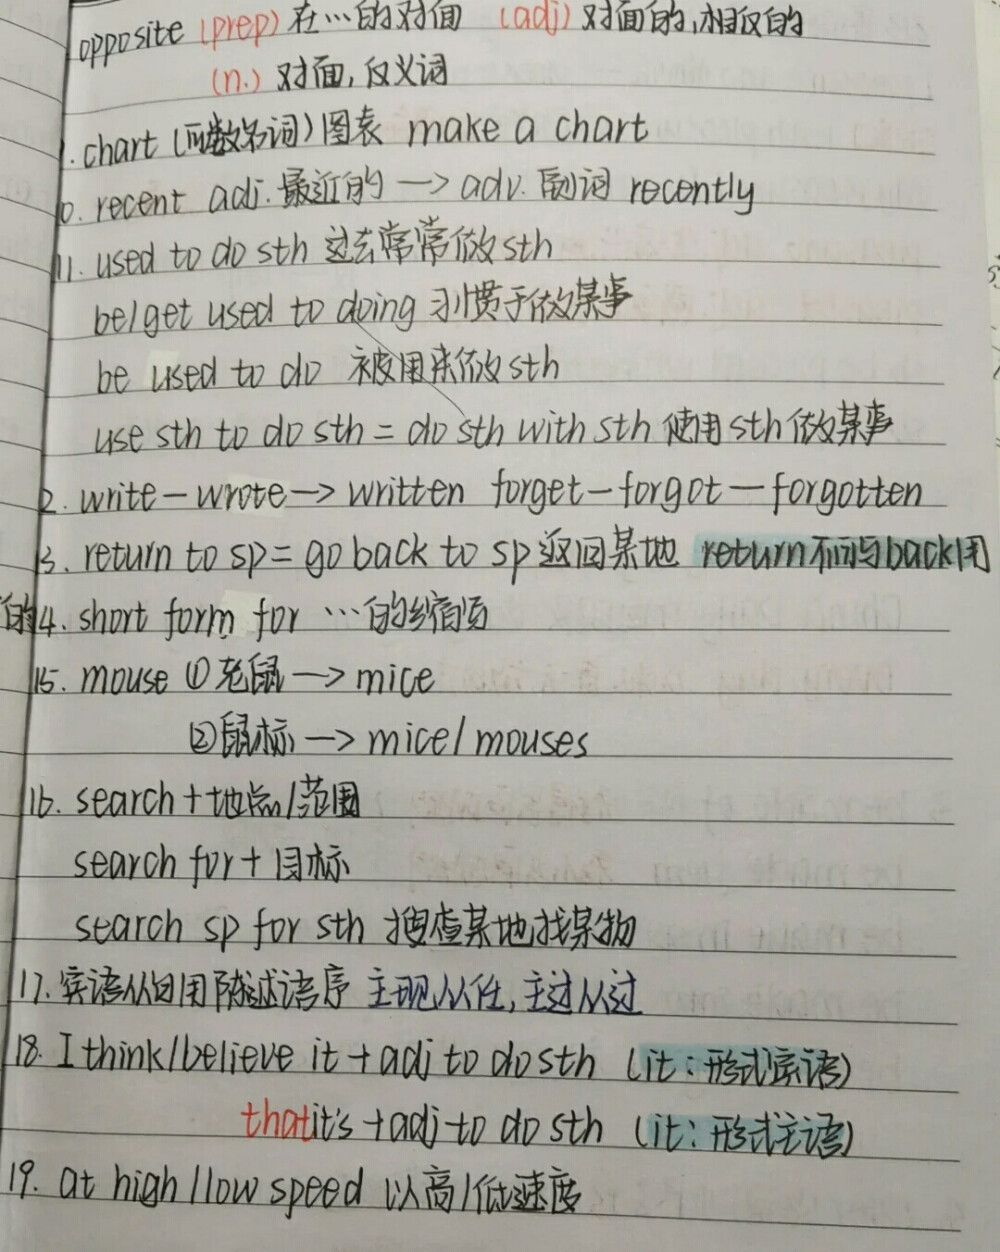 opposite (prep) 在…的对面 (adj) 对面的,相反的
(n.) 对面,反义词
. chart (可数名词) 图表 make a chart
0. recent adj. 最近的 → adv. 副词 recently
11. used to do sth 过去常常做sth
be/get used to doing 习惯于做某事
be used to do 被用来做sth
use sth to do sth = do sth with sth 使用sth做某事
2. write-wrote→written forget-forgot-forgotten
3. return to sp = go back to sp 返回某地 return不可与back用
的14. short form for …的缩写
15. mouse ①老鼠 → mice
②鼠标 → mice/mouses
16. search+地点/范围
search for+目标
search sp for sth 搜查某地找某物
17. 宾语从句用陈述语序 主现从任,主过从过
18. I think/believe it + adj to do sth (it:形式宾语)
that it's +adj to do sth (it:形式主语)
19. at high/low speed 以高/低速度